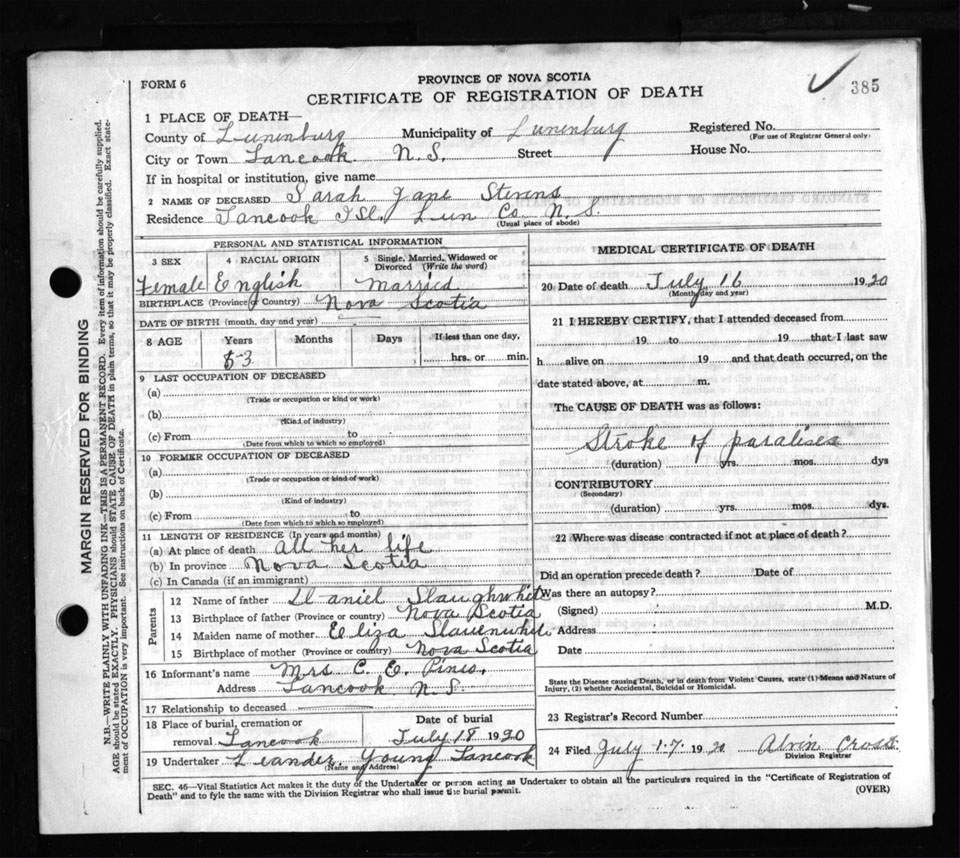 FORM 6
PROVINCE OF NOVA SCOTIA
CERTIFICATE OF REGISTRATION OF DEATH
385
1 PLACE OF DEATH—
County of Lunenburg Municipality of Lunenburg Registered No.
(For use of Registrar General only)
City or Town Tancook N.S. Street House No.
If in hospital or institution, give name
2 NAME OF DECEASED Sarah Jane Stevens
Residence Tancook Isl. Lun Co. N.S.
(Usual place of abode)
PERSONAL AND STATISTICAL INFORMATION
3 SEX 4 RACIAL ORIGIN 5 Single, Married, Widowed or Divorced (Write the word)
Female English Married
BIRTHPLACE (Province or Country) Nova Scotia
DATE OF BIRTH (month, day and year)
8 AGE Years Months Days If less than one day,
53 hrs. or min.
9 LAST OCCUPATION OF DECEASED
(a)
(Trade or occupation or kind of work)
(b)
(Kind of industry)
(c) From to
(Date from which to which so employed)
10 FORMER OCCUPATION OF DECEASED
(a)
(Trade or occupation or kind of work)
(b)
(Kind of industry)
(c) From to
(Date from which to which so employed)
11 LENGTH OF RESIDENCE (In years and months)
(a) At place of death all her life
(b) In province Nova Scotia
(c) In Canada (if an immigrant)
Parents
12 Name of father Daniel Slaughwhit
13 Birthplace of father (Province or country) Nova Scotia
14 Maiden name of mother Eliza
15 Birthplace of mother (Province or country) Nova Scotia
16 Informant's name Mrs C. E.
Address Tancook N.S.
17 Relationship to deceased
18 Place of burial, cremation or removal Tancook
Date of burial
July 18 1920
19 Undertaker Leander Young Tancook
(Name and Address)
MEDICAL CERTIFICATE OF DEATH
20 Date of death July 16 1920
(Month, day and year)
21 I HEREBY CERTIFY, that I attended deceased from
19 to 19 that I last saw
h alive on 19 and that death occurred, on the
date stated above, at m.
The CAUSE OF DEATH was as follows:
Stroke of paralises
(duration) yrs. mos. dys
CONTRIBUTORY
(Secondary)
(duration) yrs. mos. dys.
22 Where was disease contracted if not at place of death?
Did an operation precede death? Date of
Was there an autopsy?
(Signed) M.D.
Address
Date
State the Disease causing Death, or in death from Violent Causes, state (1) Means and Nature of
Injury, (2) whether Accidental, Suicidal or Homicidal.
23 Registrar's Record Number
24 Filed July 17 1920 Alvin Cross
Division Registrar
SEC. 46—Vital Statistics Act makes it the duty of the Undertaker or person acting as Undertaker to obtain all the particulars required in the "Certificate of Registration of
Death" and to fyle the same with the Division Registrar who shall issue the burial permit.
(OVER)
MARGIN RESERVED FOR BINDING
N.B.—WRITE PLAINLY WITH UNFADING INK—THIS IS A PERMANENT RECORD. Every item of information should be carefully supplied.
AGE should be stated EXACTLY. PHYSICIANS should STATE CAUSE OF DEATH in plain terms, so that it may be properly classified. Exact state-
ment of OCCUPATION is very important. See instructions on back of Certificate.